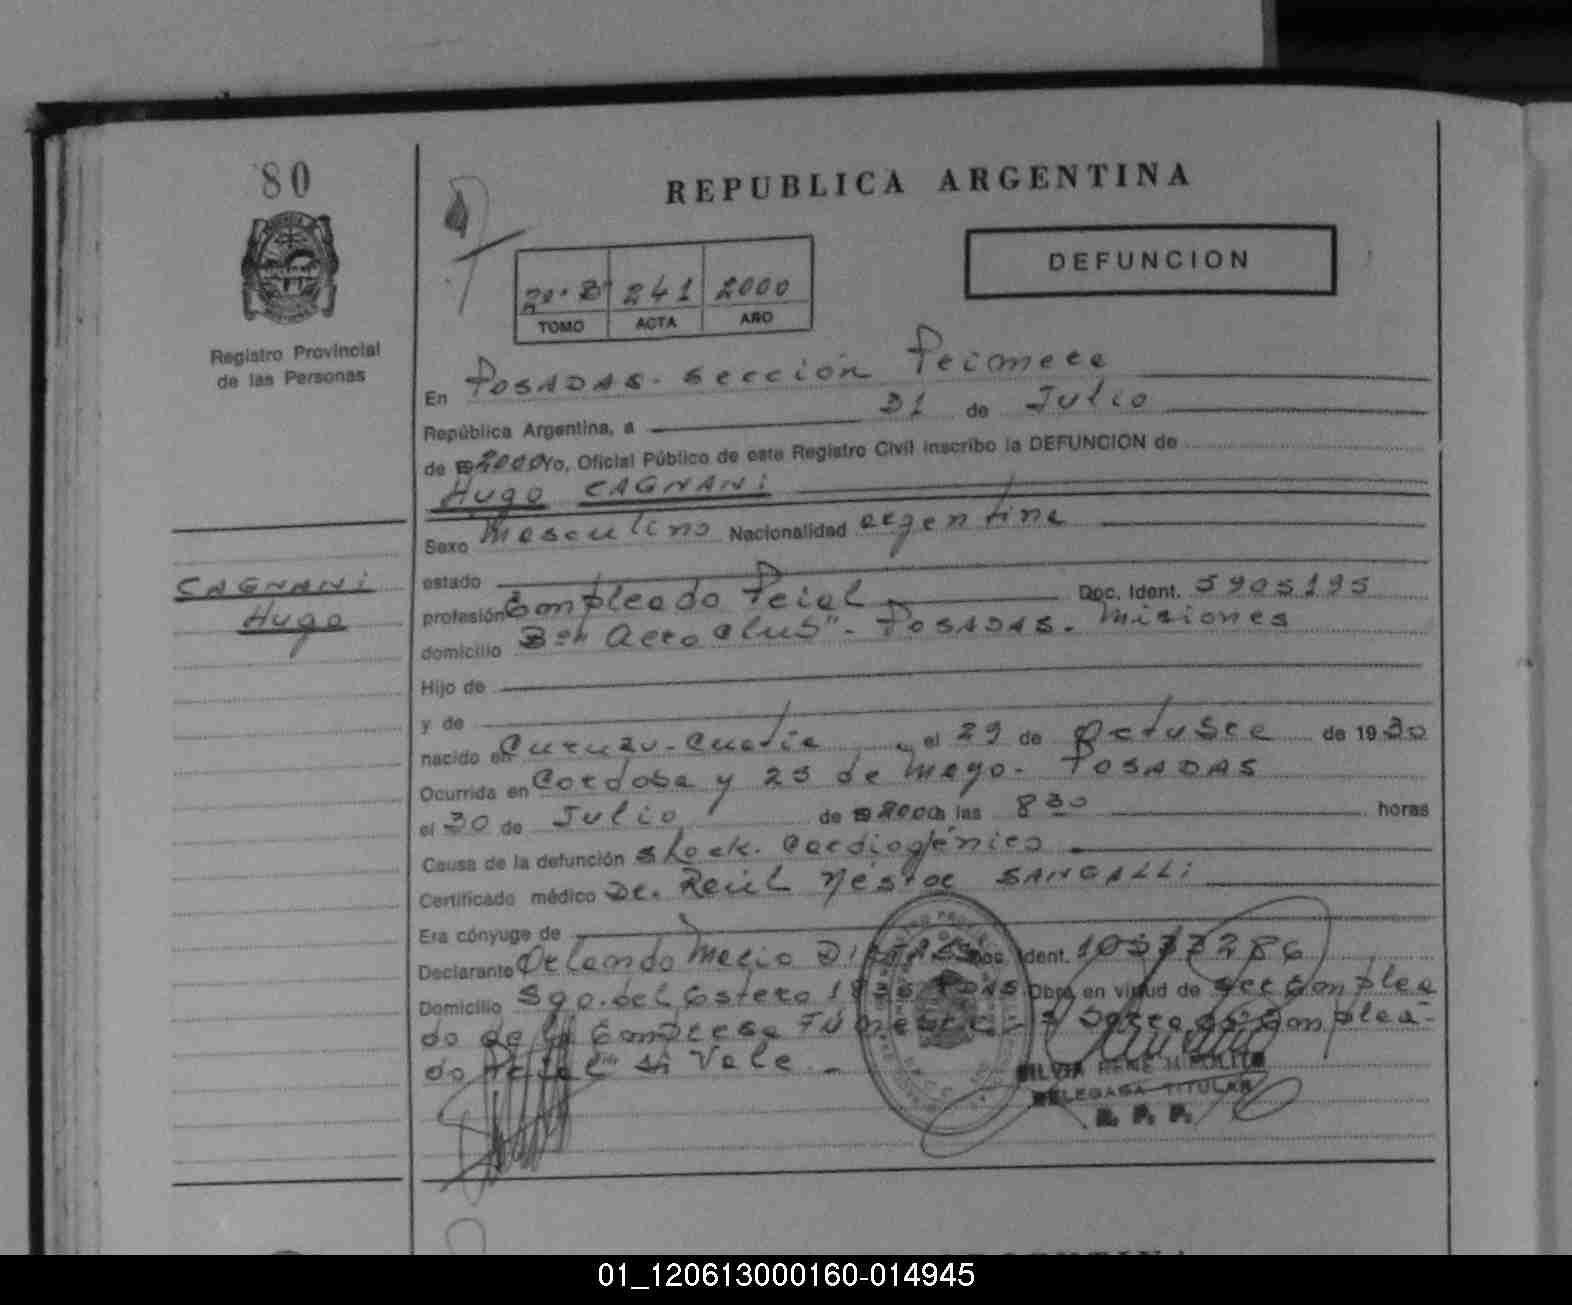 80
REPUBLICA ARGENTINA
DEFUNCION
20·B" 241 2000
TOMO ACTA AÑO
Registro Provincial
de las Personas
En POSADAS. Sección Primera
República Argentina, a 31 de Julio
de 2000 Yo, Oficial Público de este Registro Civil inscribo la DEFUNCION de
Hugo CAGNANI
Sexo Masculino Nacionalidad argentina
CAGNANI
Hugo
estado
profesión Empleado Pcial Doc. Ident. 5905195
domicilio Bºn Aero Club"- POSADAS. Misiones
Hijo de
y de
nacido en Curuzu-Cuatia el 29 de Octubre de 1930
Ocurrida en Cordoba y 25 de Mayo. POSADAS
el 30 de Julio de 2000 a las 8 30 horas
Causa de la defunción Shock. Cardiogénico
Certificado médico Dr. Raúl Néstor SANGALLI
Era cónyuge de
Declarante Orlando Mario Doc. Ident.
Domicilio Sgo. del Estero Obra en virtud de ser Emplea
do de la Empresa Emplea-
do Vale
SILVIA RENE HIPOLITO
DELEGADA TITULAR
R. P. P.
01_120613000160-014945